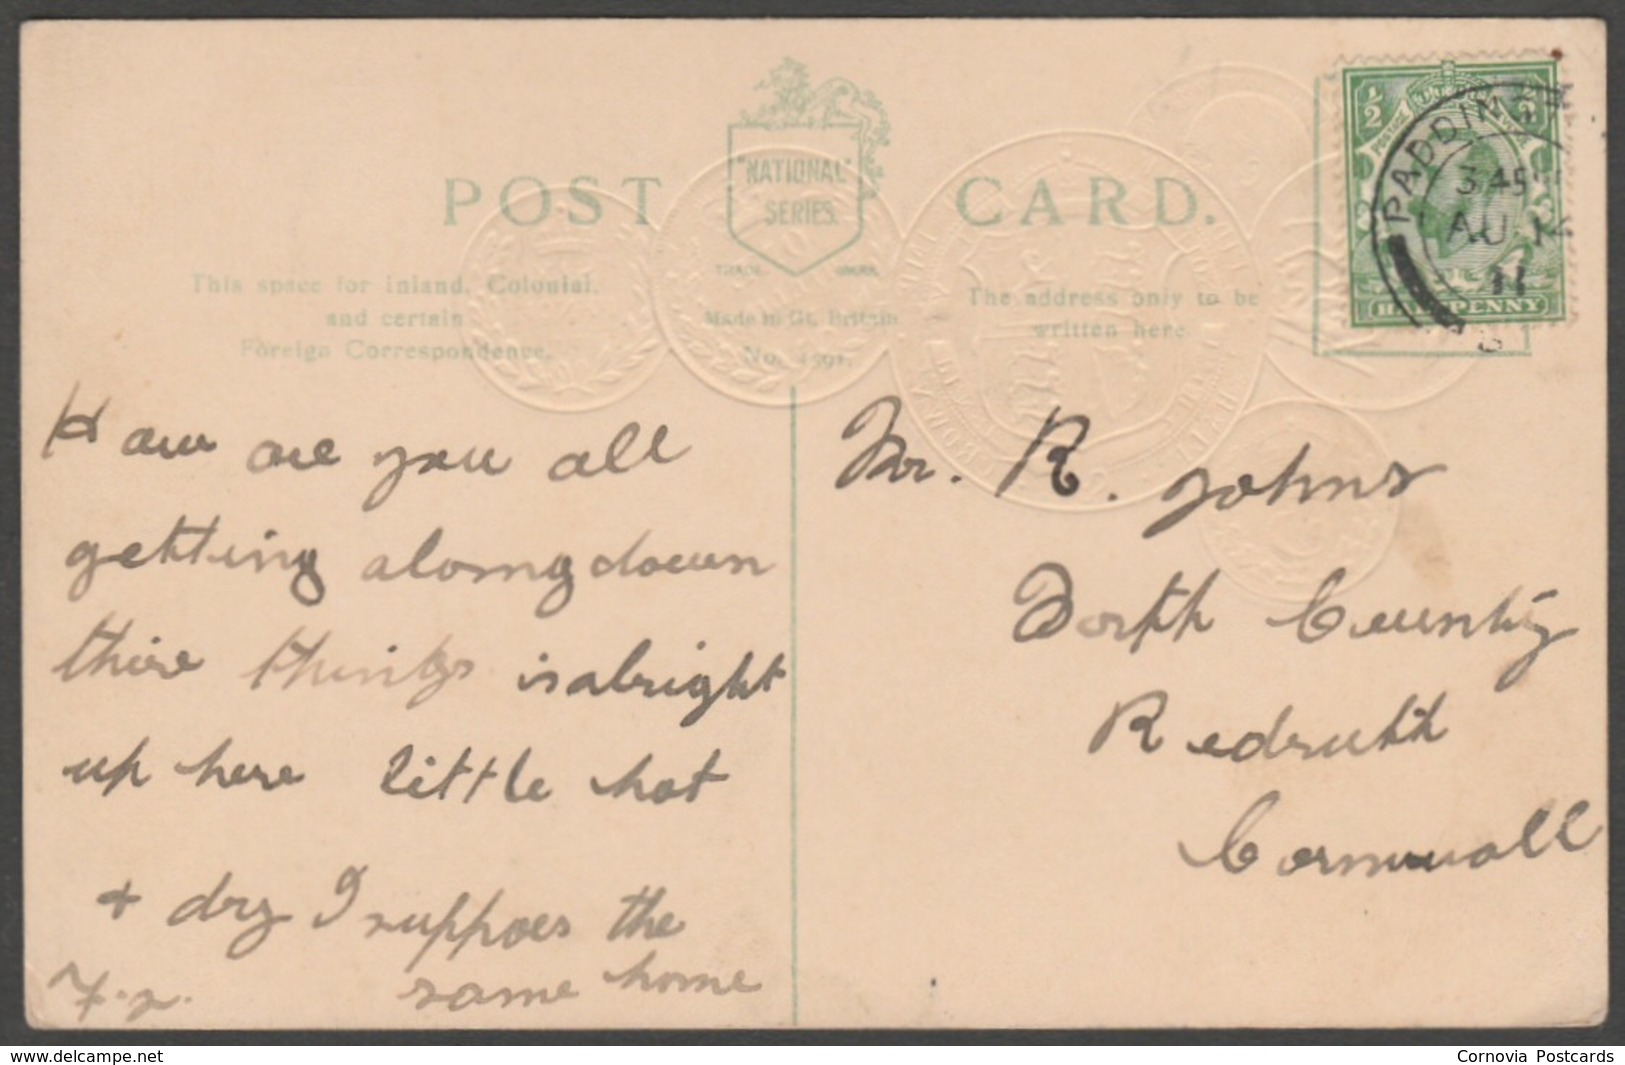 POST CARD.
"NATIONAL"
SERIES.
TRADE MARK.
This space for inland, Colonial,
and certain
Foreign Correspondence.
Made in Gt. Britain
No. 4591.
The address only to be
written here.
PADDINGTON
3.45
AU
11
HALFPENNY
How are you all
getting along down
thire things is abright
up here little hot
+ dry I suppoes the
same home
Mr. R. Johns
North Cuunty
Redruth
Cornwall
www.delcampe.net
Cornovia Postcards